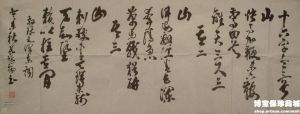 十六字令三首
山
快马加鞭未下鞍
惊回首
离天三尺三
其二
山
倒海翻江卷巨澜
奔腾急
万马战犹酣
其三
山
刺破青天锷未残
天欲堕
赖以拄其间
博宝保珍商城